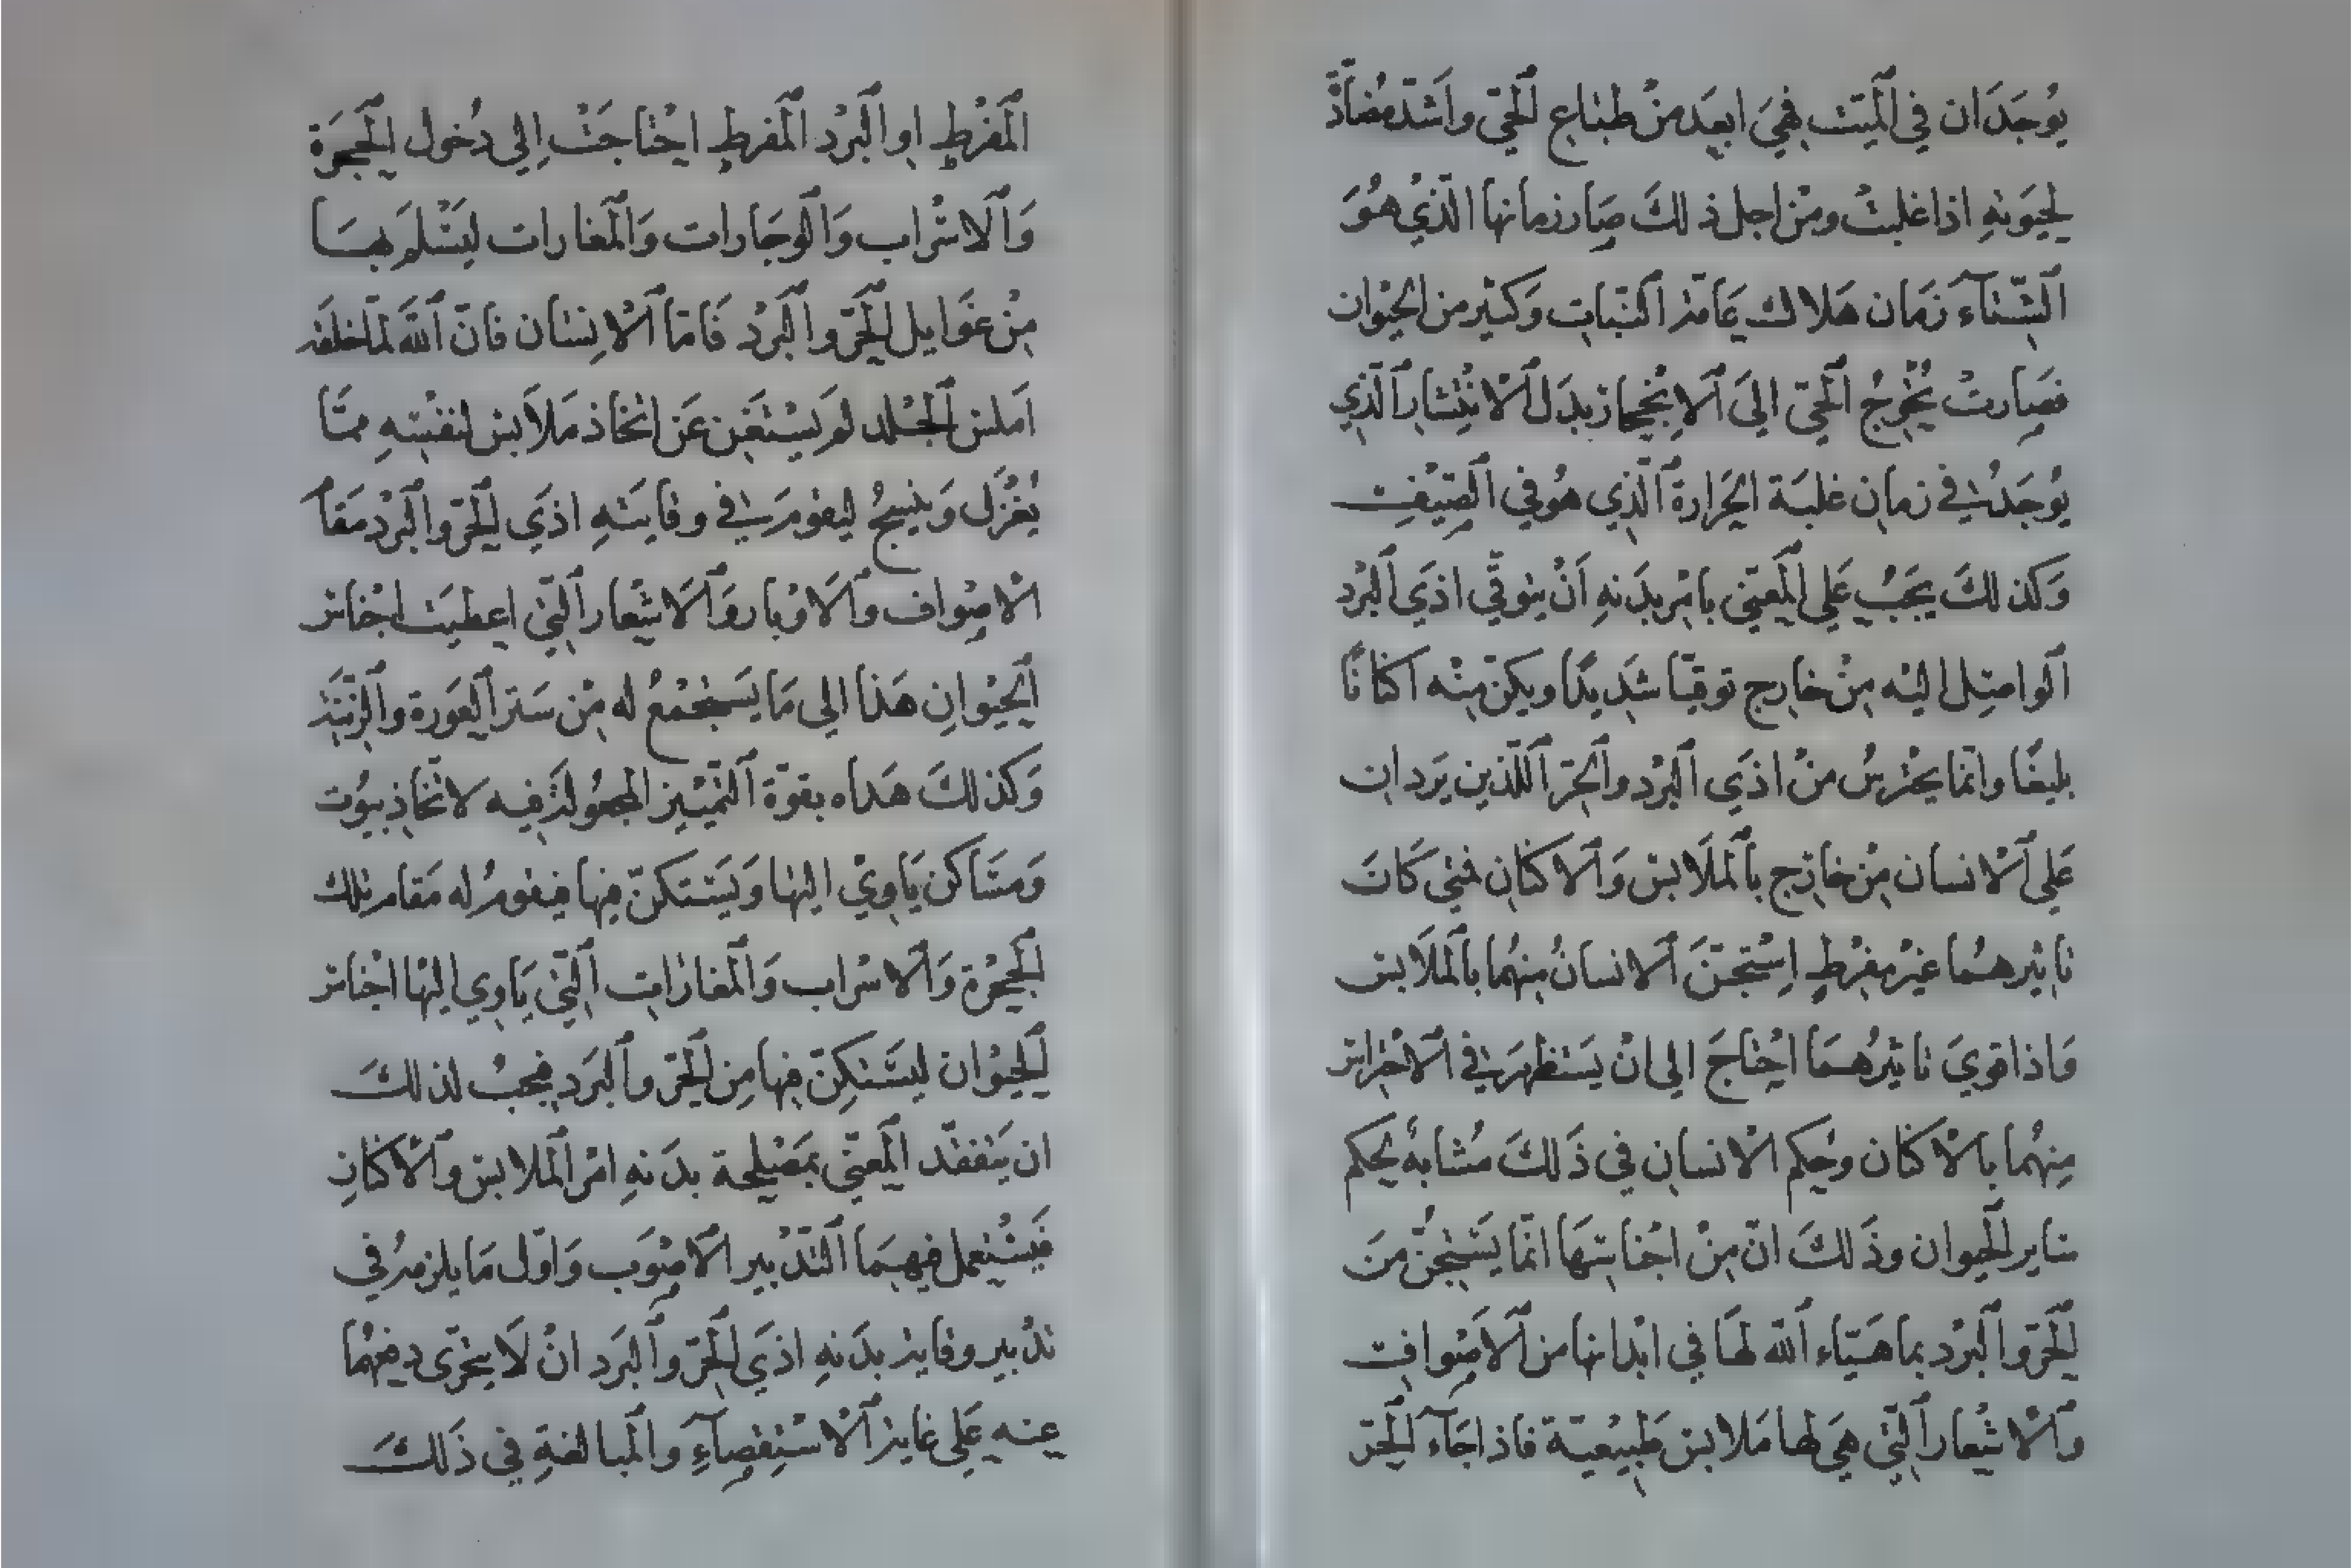 يُوجَدَان في المَيّت فهيَ ابعَد منْ طباع الحَيّ واَشدّ مضاَدّةً
لحيَوتهِ اذا غلبتْ ومن اجل ذلكَ صَار زمانها الّذيْ هُوَ
الشّتآءَ زَمَان هَلاك عَامّة النّبات وَكثير من الحيْوان
فصَارتْ تُحْوِجُ الحَيّ الىَ الاِنْجحاز بدَل الانْتشار الّذي
يُوجَدُ في زمان غلبَة الحَرارة الّذِي هُو في الصّيْف
وَكذلكَ يجَبُ عَلي المَعنيّ بامْر بدَنهِ اَنْ يتوقّي اذَي البَرْد
الواصِل اليْه مِنْ خارج توقيّا شدِيدًا ويكنّ مِنْه اكنانًا
بليغًا وانّما يحْترسُ منْ اذَي البَرْد والحَرّ اللّذين يَردان
عَلي الانسان مِنْ خارج بالمَلَابسْ وَالاكنان فمتي كَانَ
تاثيرهُما غيْر مفْرطٍ اِسْتجَنّ الانسانُ مِنهُما بالملَابسْ
وَاذا قويَ تاثيرُهمَا احْتاجَ الى انْ يَستظهرَ في الاحْتراسْ
مِنهُما بالاكنان وحُكم الانسان في ذَلكَ مُشابهٌ لحكم
سَاير الحَيوان وذَلكَ انّ مِنْ اجْناسَهَا انّما يَسْتجنّ منَ
الحَرّ والبرْد بما هَيّاء اللّه لهَا في ابْدانها من الاصْواف
والاشْعار الّتيْ هيَ لها مَلابسْ طَبِيْعيّة فاذا جَآء الحَرّ
المَفْرطٍ او البَرْد المفرطٍ احْتاجَتْ اِلي دُخول الجَحِرَة
وَالاسْراب وَالوجَارات وَالمغارات ليَسْلَم بهَا
مِنْ غوَايل الحَرّ والبَرْد فَامّا الاْنِسَان فانّ اللّهَ لمّا خلقَه
اَملسْ الجْلد لم يَسْتغْن عَن اتخاذ مَلاَبسْ لنفسْهِ ممّا
يُغْزَل وَينسجُ ليقومَ في وقايتهِ اذَي الحَرّ والبَرْد مَقاَم
الاصْواف والاوْبار وَالاَشْعار الّتيْ اعطيَت اجْناسْ
الحَيْوانِ هَذا الي مَا يسَتجْمعُ له مِنْ سَتر العَورة والزّيْنَة
وَكذلكَ هَداه بقوّة التّمْييز المجعُولة فيه لاتّخاذ بيُوت
وَمسَاكن يَاوِيْ اليْها وَيَسْتكنّ فيها فيقومُ له مَقام تلك
الجحِرْة وَالاسْراب وَالمغارَات الّتيْ يَاوِي اليْها اجْناسْ
الحَيْوان ليَسْتكِنّ فيها مِن الحَرّ والبَرَد فيجبُ لذلكَ
ان يَتفقّد المَعنيّ بمَصْلحة بدَنهِ امْر المَلابسْ والاْكنانِ
فيَسْتعمل فيهمَا التّدْبير الاَصْوَب وَاوّل مَا يلزمُ في
تدْبير وقاية بدَنهِ اذَي الحَرّ والبَرَد انْ لَا يتحَرّى دفعهُما
عنه عَلي غاية الاسْتِقصآءِ والمبالغةِ في ذَلكَ